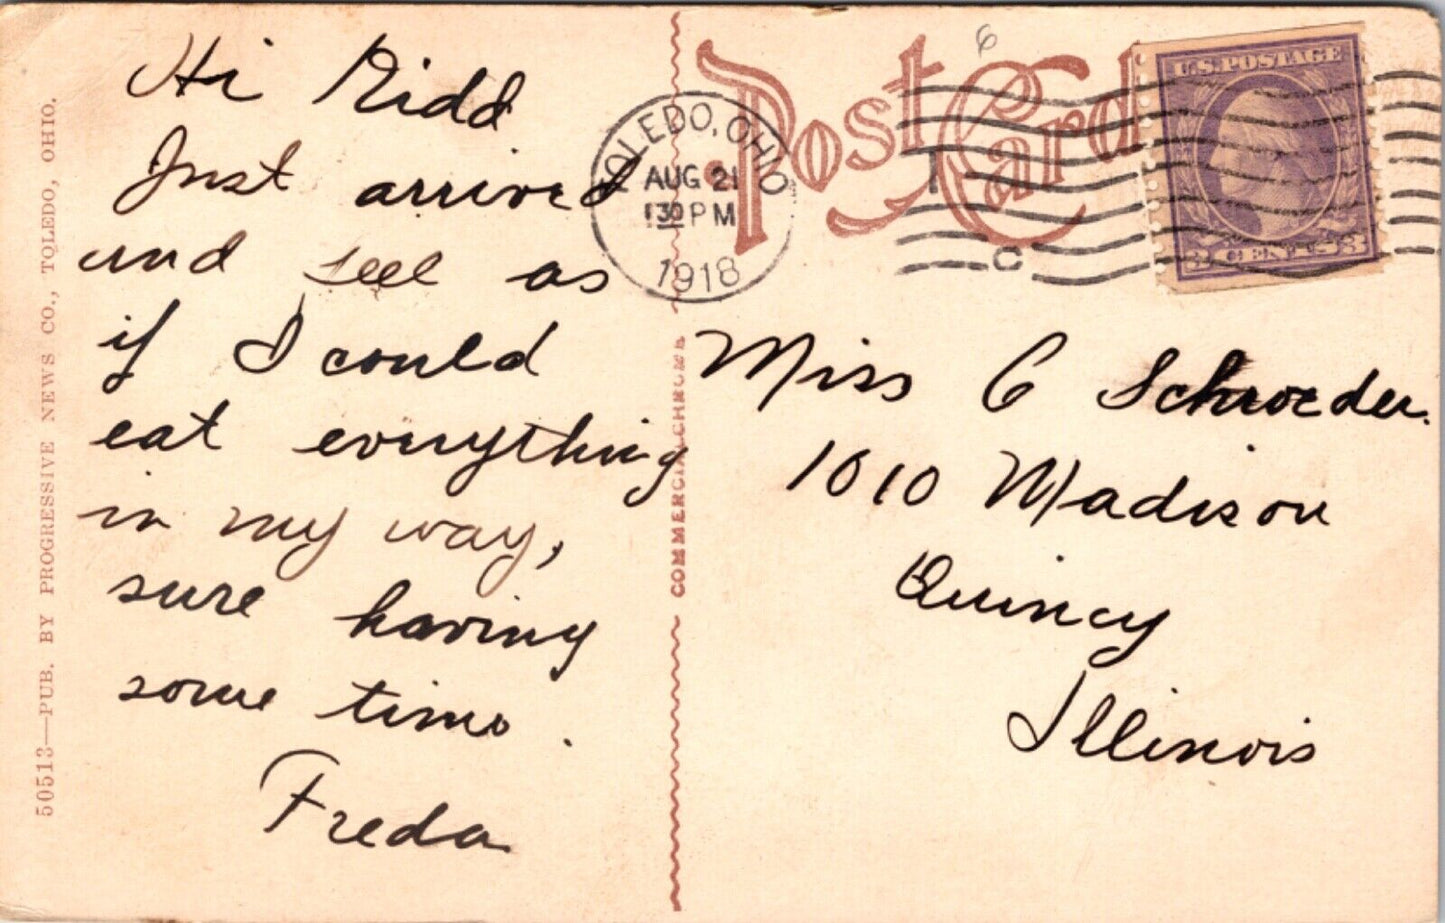 Hi Kidd
Just arrived
and feel as
if I could
eat everything
in my way,
sure having
some time.
Freda
50513—PUB. BY PROGRESSIVE NEWS CO., TOLEDO, OHIO.
COMMERCIALCHROME
Post Card
6
TOLEDO, OHIO
AUG 21
1 30 PM
1918
T
C
U.S. POSTAGE
3 CENTS 3
Miss C Schroeder.
1010 Madison
Quincy
Illinois